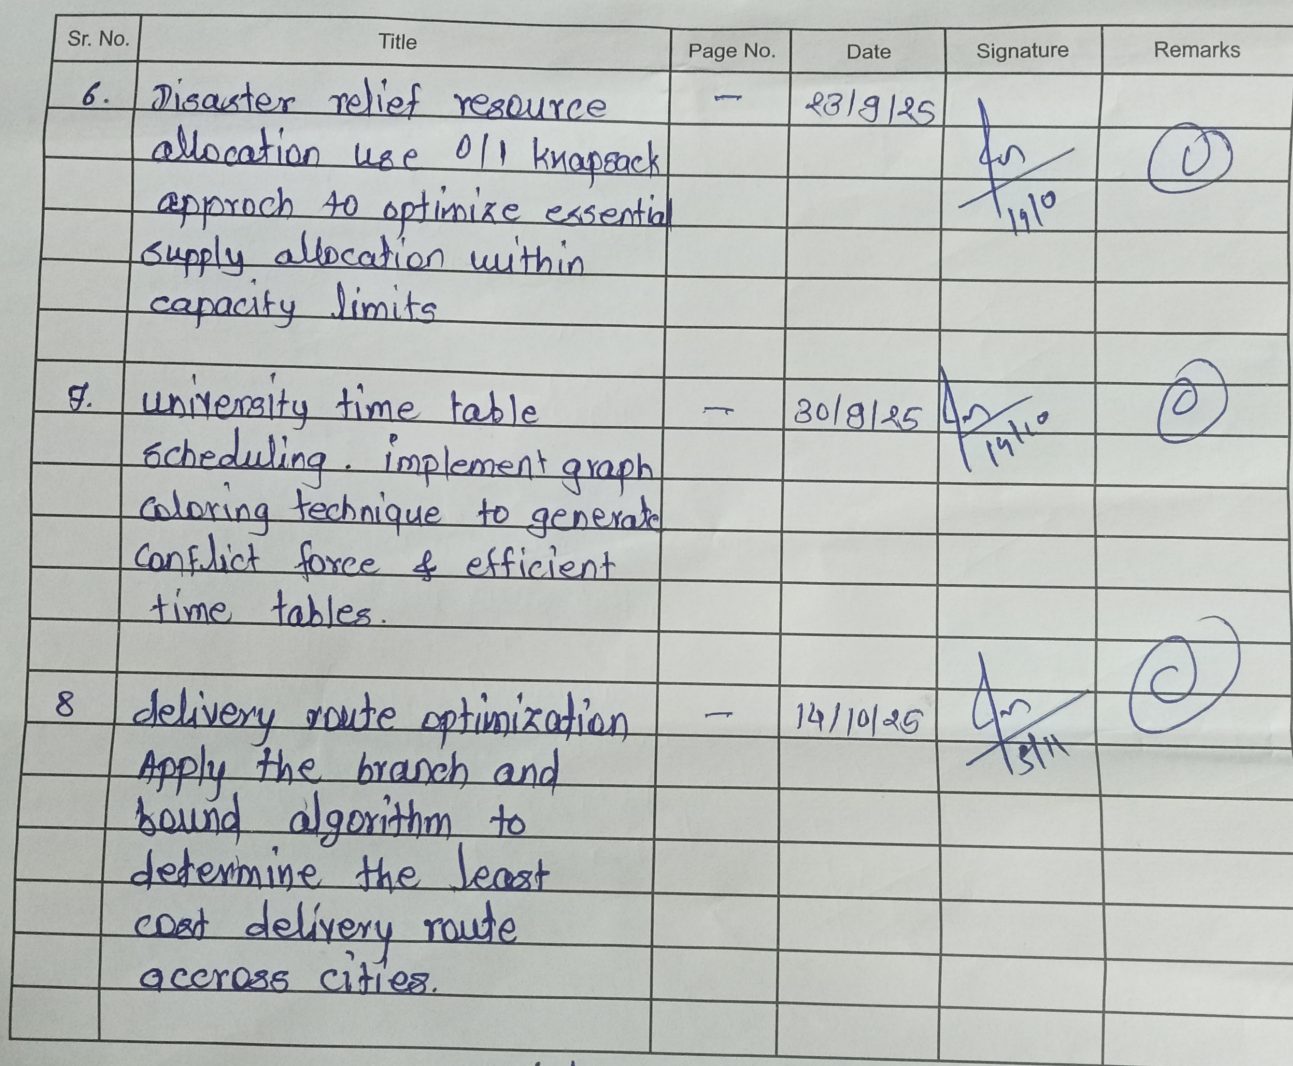 Sr. No. Title Page No. Date Signature Remarks
6. Disaster relief resource – 23/9/25
allocation use 0/1 knapsack
approch to optimize essential
19/10
supply allocation within
capacity limits
7. university time table – 30/9/25
scheduling. implement graph 14/10
coloring technique to generate
conflict force & efficient
time tables.
8 delivery route optimization – 14/10/25
Apply the branch and
bound algorithm to
determine the least
cost delivery route
accross cities.